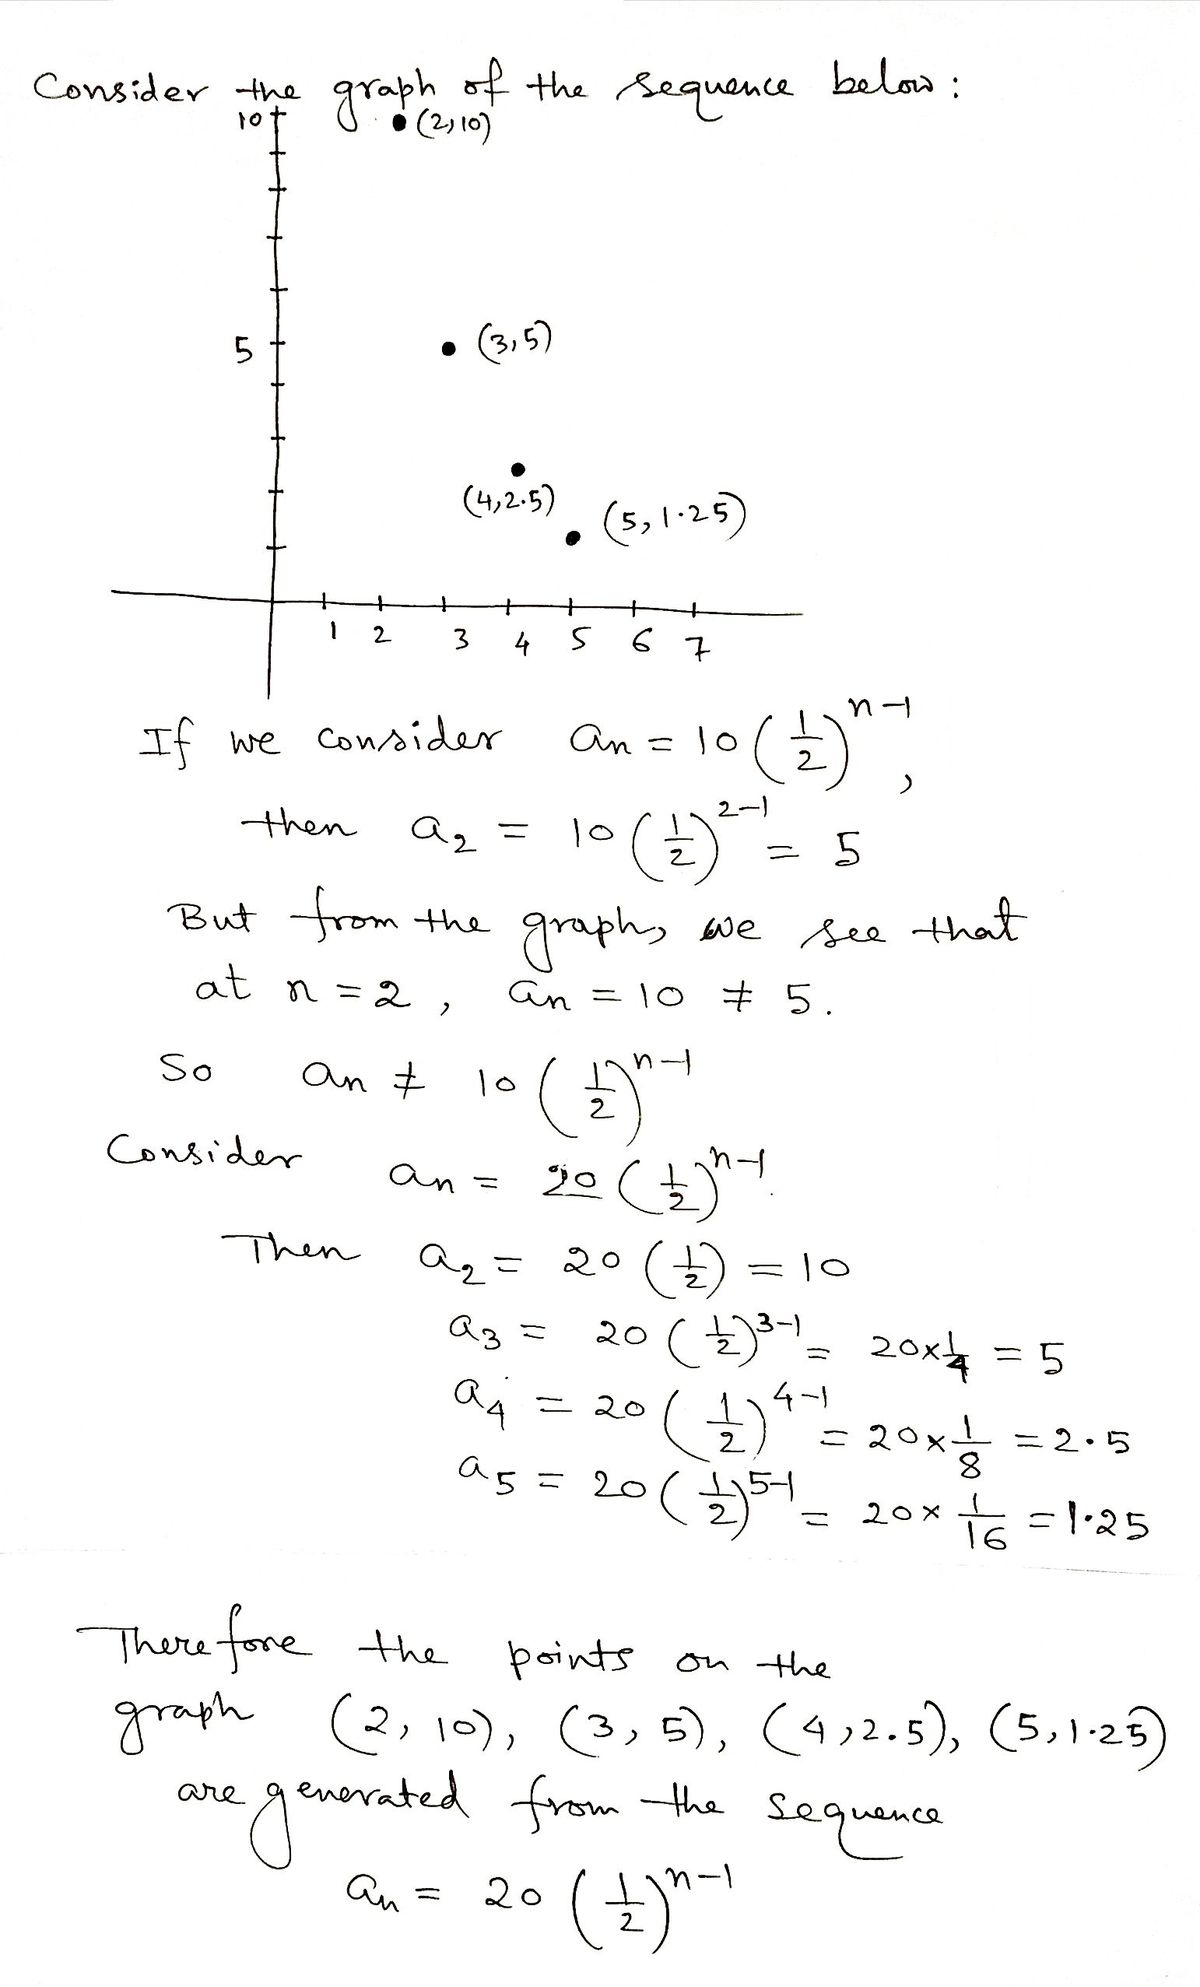 Consider the graph of the sequence below:
10
(2,10)
5
(3,5)
(4,2.5)
(5,1.25)
1 2 3 4 5 6 7
If we consider an = 10(1/2)^n-1,
then a2 = 10(1/2)^2-1 = 5
But from the graph, we see that
at n = 2, an = 10 ≠ 5.
So an ≠ 10(1/2)^n-1
Consider an = 20(1/2)^n-1.
Then a2 = 20(1/2) = 10
a3 = 20(1/2)^3-1 = 20×1/4 = 5
a4 = 20(1/2)^4-1 = 20×1/8 = 2.5
a5 = 20(1/2)^5-1 = 20×1/16 = 1.25
Therefore the points on the
graph (2, 10), (3, 5), (4, 2.5), (5, 1.25)
are generated from the sequence
an = 20(1/2)^n-1